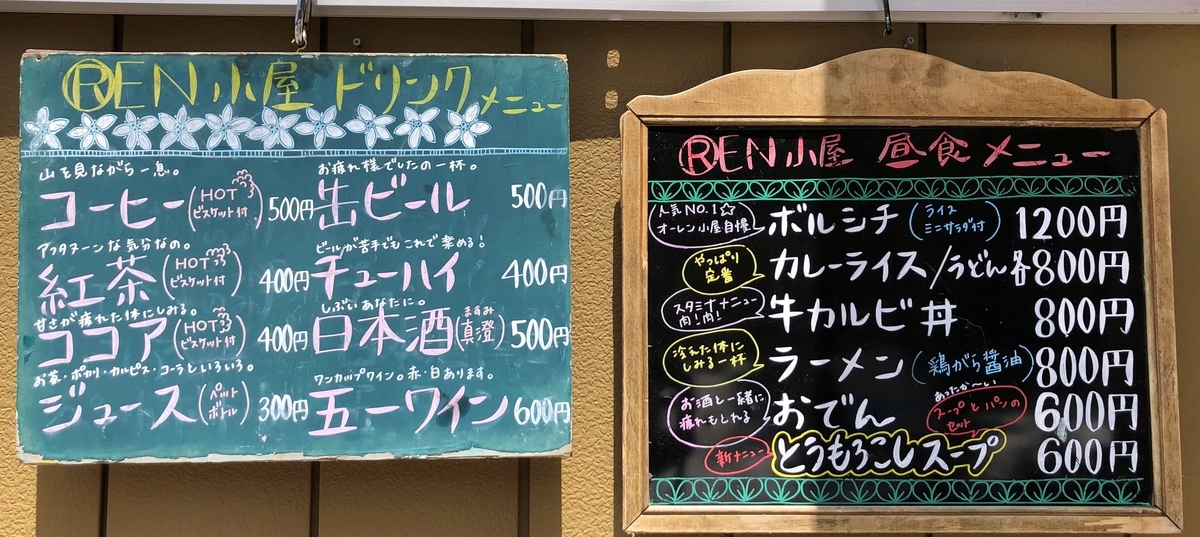 ®EN小屋 ドリンクメニュー
山を見ながら一息。
コーヒー(HOT ビスケット付) 500円
アフタヌーンな気分なの。
紅茶(HOT ビスケット付) 400円
甘さが疲れた体にしみる。
ココア(HOT ビスケット付) 400円
お茶・ポカリ・カルピス・コーラといろいろ。
ジュース(ペットボトル) 300円
お疲れ様でしたの一杯。
缶ビール 500円
ビールが苦手でもこれで楽める!
チューハイ 400円
しぶいあなたに。
日本酒(真澄 ますみ) 500円
ワンカップワイン。赤・白あります。
五一ワイン 600円
®EN小屋 昼食メニュー
人気NO.1☆
オーレン小屋自慢
ボルシチ(ライス ミニサラダ付) 1200円
やっぱり
定番
カレーライス/うどん 各800円
スタミナメニュー
肉!肉!
牛カルビ丼 800円
冷えた体に
しみる一杯
ラーメン(鶏がら醤油) 800円
お酒と一緒に
疲れもとれる
おでん 600円
あったか〜い
スープとパンの
セット
新メニュー
とうもろこしスープ 600円